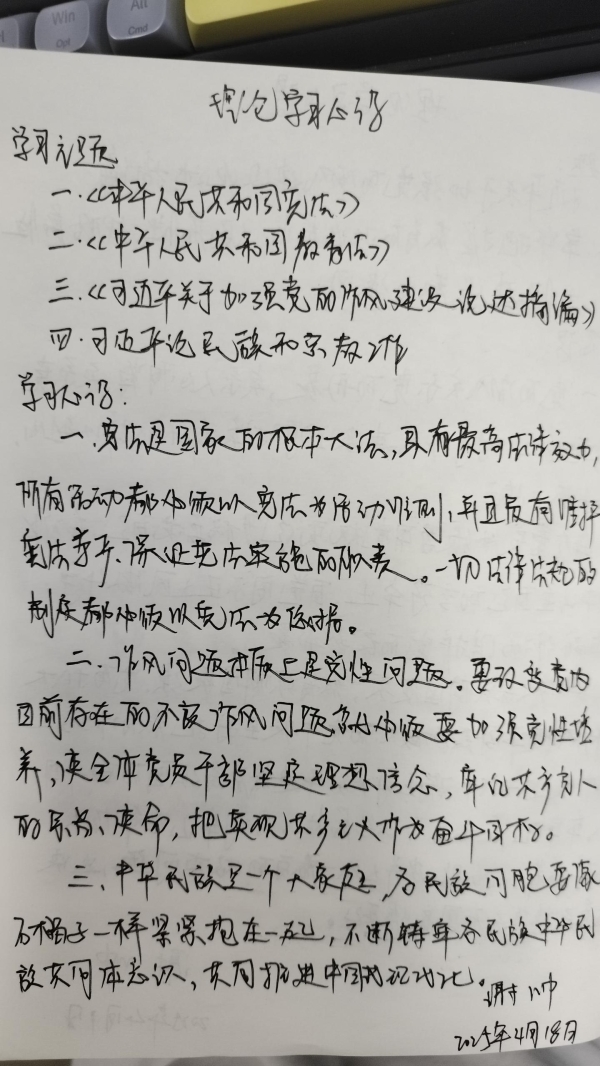 Win
Opt
Alt
Cmd
理论学习心得
学习主题
一.《中华人民共和国宪法》
二.《中华人民共和国教育法》
三.《习近平关于加强党的作风建设论述摘编》
四.习近平论民族和宗教工作
学习心得:
一.宪法是国家的根本大法,具有最高法律效力,
所有活动都必须以宪法为活动准则,并且负有维护
宪法尊严、保证宪法实施的职责。一切法律法规的
制定都必须以宪法为依据。
二.作风问题本质上是党性问题。要改变党内
目前存在的不良作风问题就必须要加强党性培
养,使全体党员干部坚定理想信念,牢记共产党人
的宗旨、使命,把实现共产主义作为奋斗目标。
三.中华民族是一个大家庭,各民族同胞要像
石榴子一样紧紧抱在一起,不断铸牢各民族中华民
族共同体意识,共同推进中国式现代化。
2025年4月18日